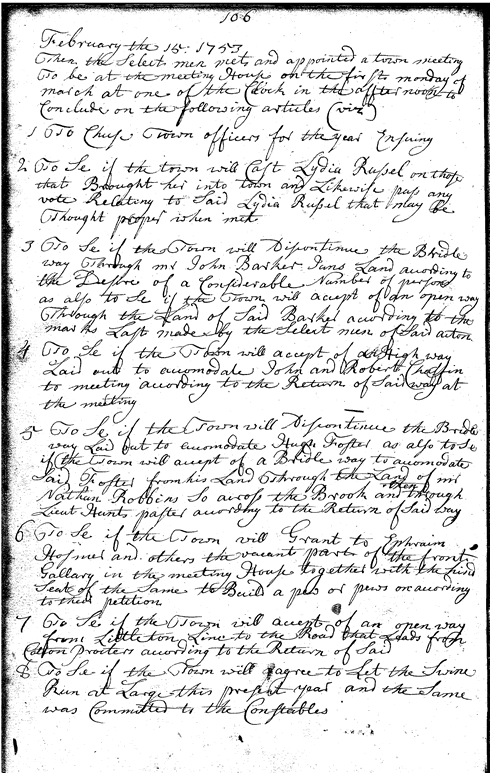 106
February the 15: 1753
Then the Select men mets and appointed a town meeting
To be at the meeting House on the first monday of
march at one of the Clock in the affternoon to
Conclude on the following articles (viz)
1 To Chuse Town officers for the year Ensuing
2 To Se if the town will Cast Lydia Russel on those
that Brought her into Town and Likewise pass any
vote Relating to Said Lydia Russel that may be
Thought proper when met
3 To Se if the Town will Discontinue the Bridle
way Through mr John Barker Juns Land acording to
the Desire of a Considerable Number of persons
as also to Se if the Town will accept of an open way
Through the Land of Said Barker according to the
marks Last made by the Select men of Said acton
4 To Se if the Town will accept of a High way
Laid out to accomodate John and Robert Chaffin
to meeting according to the Return of Said way at
the meeting
5 To Se if the Town will Discontinue the Bridle
way Laid out to acomodate Hugh Foster as also to Se
if the Town will accept of a Bridle way to acomodate
Said Foster from his Land Through the Land of mr
Nathan Robbins So across the Brook and through
Lieut Hunts paster acording to the Return of Said way
6 To Se if the Town will Grant to Ephraim
Hosmer and others the vacant part of the front
Gallary in the meeting House together with the
Seat of the Same to Build a pew or pews on acording
to their petition
7 To Se if the Town will accept of an open way
from Littleton Line to the Road that Leads from
Procters according to the Return of Said
8 To Se if the Town will agree to Let the Swine
Run at Large this present year and the Same
was Committed to the Constables